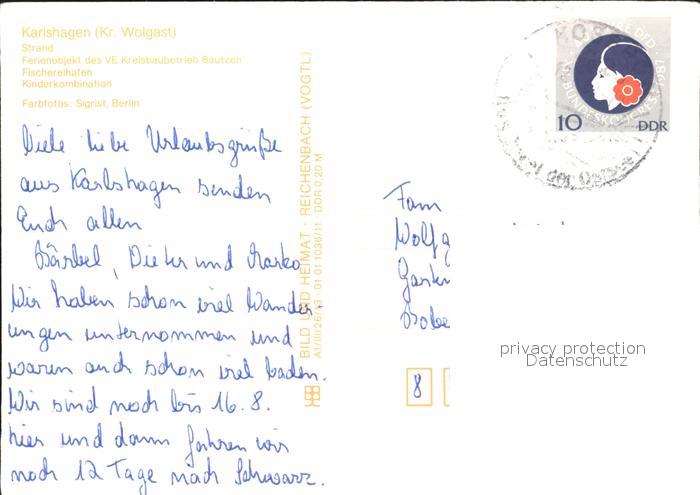 Karlshagen (Kr. Wolgast)
Strand
Ferienobjekt des VE Kreisbaubetrieb Bautzen
Fischereihafen
Kinderkombination
Farbfotos: Sigrist, Berlin
Viele liebe Urlaubsgrüße
aus Karlshagen senden
Euch allen
Bärbel, Dieter und Marko
Wir haben schon viel Wander-
ungen unternommen und
waren auch schon viel baden.
Wir sind noch bis 16. 8.
hier und dann fahren wir
noch 12 Tage nach Schwarz.
BILD UND HEIMAT · REICHENBACH (VOGTL)
A1/III/26/13 · 01 01 1036/11 · DDR 0,20 M
DFD
BUNDESKONGRESS 1987
10 DDR
der Ostsee
Fam
Wolfg
Garten
8
privacy protection
Datenschutz